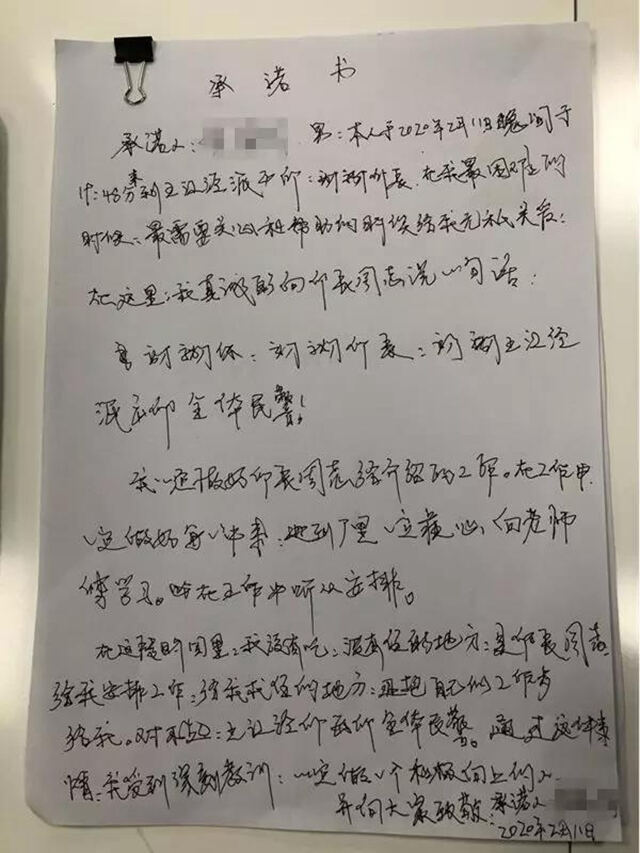 承诺书
承诺人: 男:本人于2020年2月11日晚间于
17:48分来到王江泾派出所:谢谢所长,在我最困难的
时候:最需要关心和帮助的时候给我无私关爱:
在这里:我真诚的向所长同志说一句话:
谢谢你:谢谢所长:谢谢王江泾
派出所全体民警!
我一定做好所长同志给介绍的工作。在工作中
一定做好每一件事:遇到了 一定虚心向老师
傅学习。 在工作中听从安排。
在这段时间里:我没有吃:没有住的地方:是所长同志
给我安排工作:给我找住的地方: 把自己的工作
给我。对不起:王江泾 派出所全体民警。通过这件事
情:我受到深刻教训:一定做一个积极向上的人
并向大家致敬:承诺人
2020年2月11日